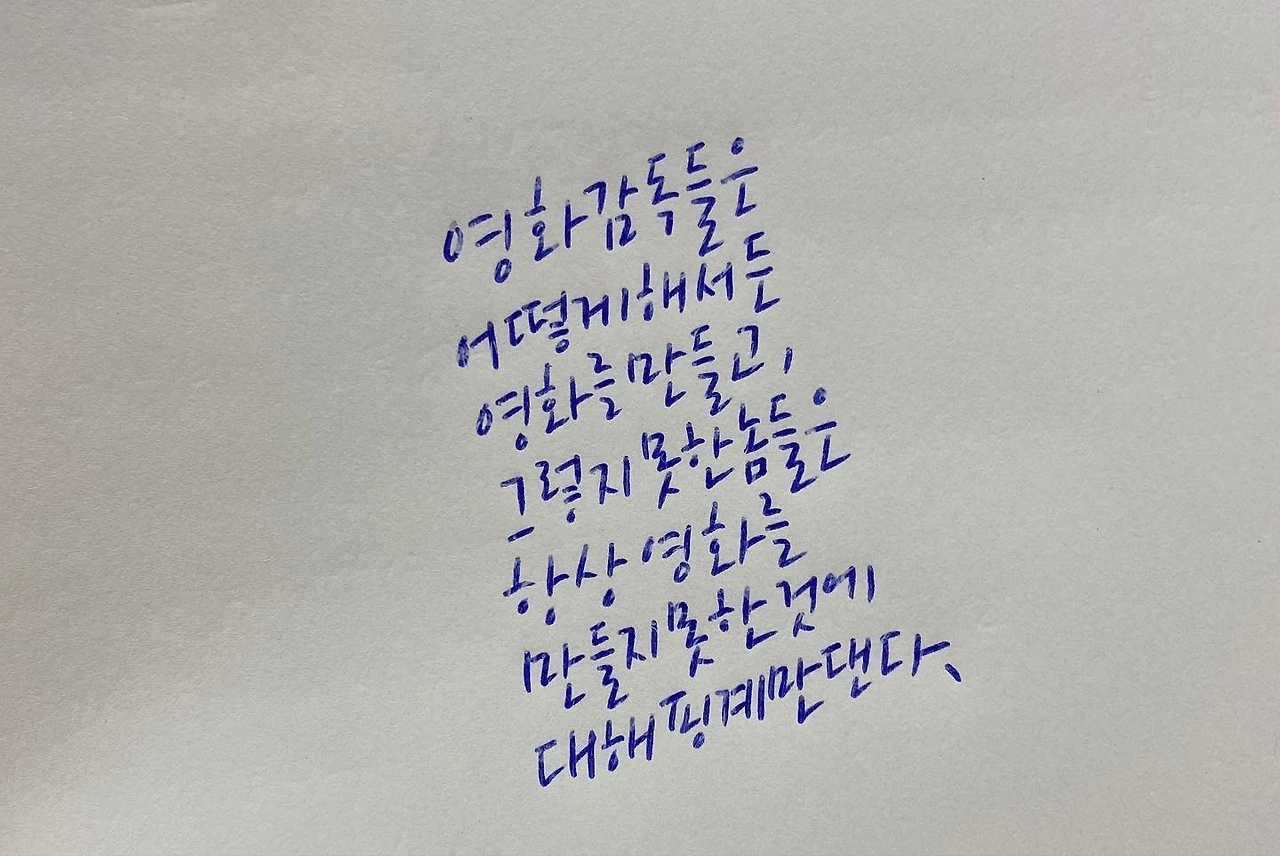 영화감독들은
어떻게해서든
영화를만들고,
그렇지못한놈들은
항상영화를
만들지못한것에
대해핑계만댄다.